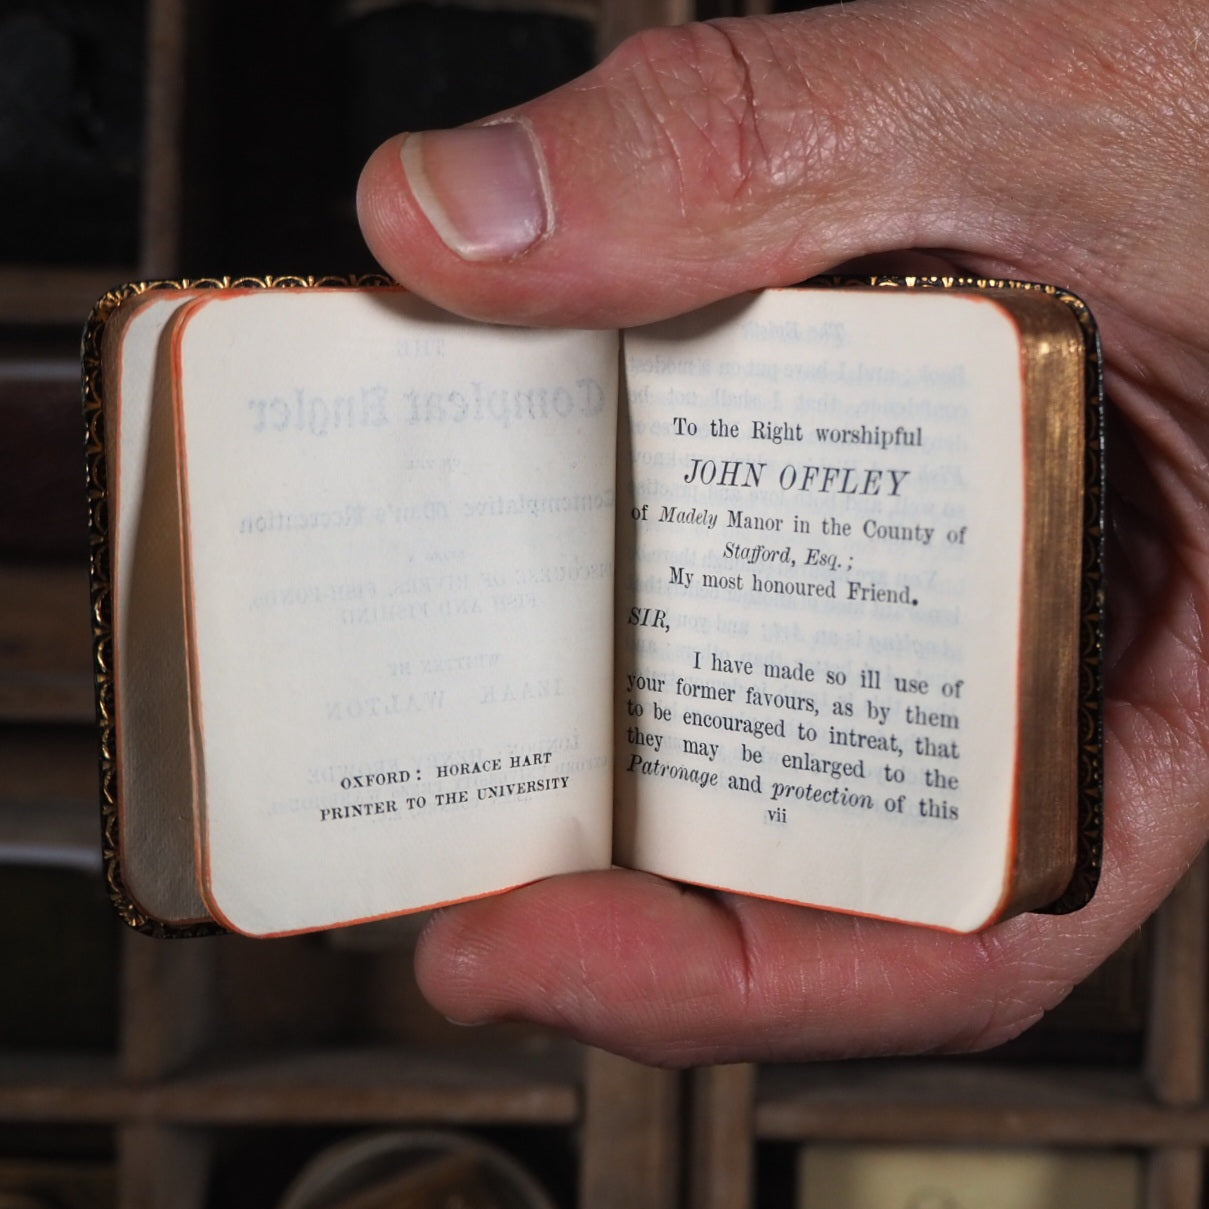 OXFORD: HORACE HART
PRINTER TO THE UNIVERSITY
To the Right worshipful
JOHN OFFLEY
of Madely Manor in the County of
Stafford, Esq.;
My most honoured Friend.
SIR,
I have made so ill use of
your former favours, as by them
to be encouraged to intreat, that
they may be enlarged to the
Patronage and protection of this
vii